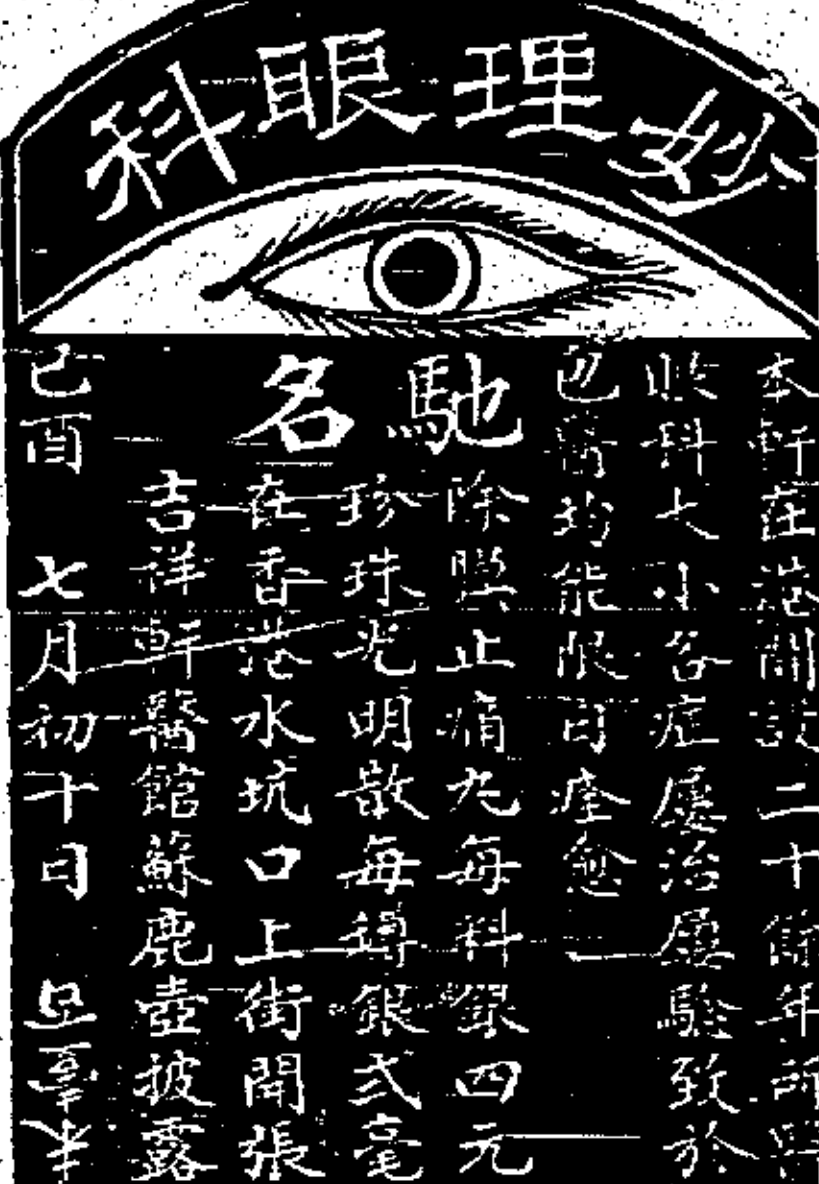 妙理眼科
本軒在港開設二十餘年所醫
眼科大小各症屢治屢驗致於
醫均能限日痊愈
馳名
除膜止痛丸每料銀四元
珍珠光明散每樽銀弍毫
在香港水坑口上街開張
吉祥軒醫館蘇鹿壺披露
己酉 七月初十日